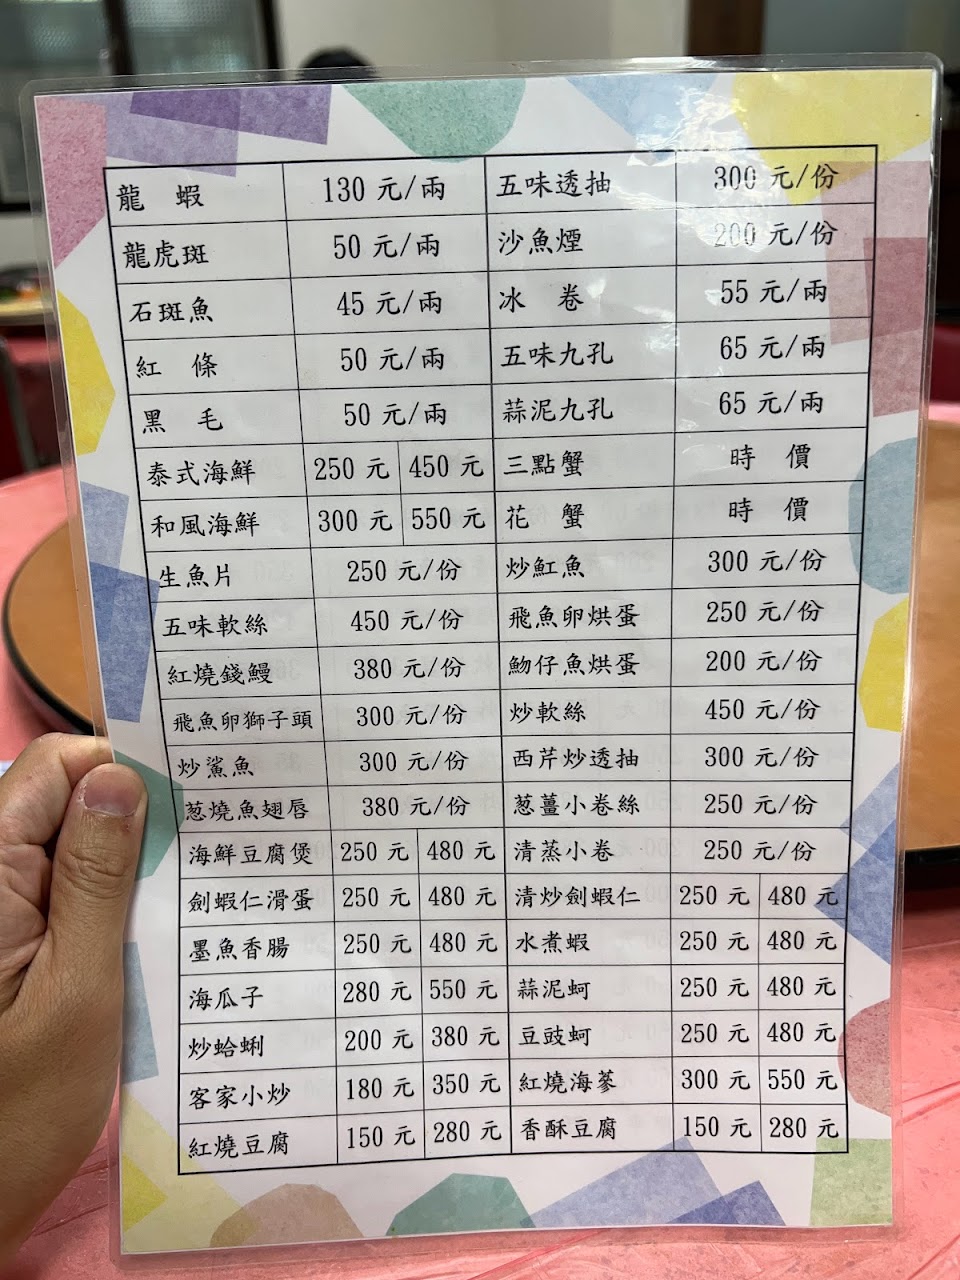 龍 蝦 130 元/兩 五味透抽 300 元/份
龍虎斑 50 元/兩 沙魚煙 200 元/份
石斑魚 45 元/兩 冰 卷 55 元/兩
紅 條 50 元/兩 五味九孔 65 元/兩
黑 毛 50 元/兩 蒜泥九孔 65 元/兩
泰式海鮮 250 元 450 元 三點蟹 時 價
和風海鮮 300 元 550 元 花 蟹 時 價
生魚片 250 元/份 炒魟魚 300 元/份
五味軟絲 450 元/份 飛魚卵烘蛋 250 元/份
紅燒錢鰻 380 元/份 魩仔魚烘蛋 200 元/份
飛魚卵獅子頭 300 元/份 炒軟絲 450 元/份
炒鯊魚 300 元/份 西芹炒透抽 300 元/份
葱燒魚翅唇 380 元/份 葱薑小卷絲 250 元/份
海鮮豆腐煲 250 元 480 元 清蒸小卷 250 元/份
劍蝦仁滑蛋 250 元 480 元 清炒劍蝦仁 250 元 480 元
墨魚香腸 250 元 480 元 水煮蝦 250 元 480 元
海瓜子 280 元 550 元 蒜泥蚵 250 元 480 元
炒蛤蜊 200 元 380 元 豆豉蚵 250 元 480 元
客家小炒 180 元 350 元 紅燒海蔘 300 元 550 元
紅燒豆腐 150 元 280 元 香酥豆腐 150 元 280 元